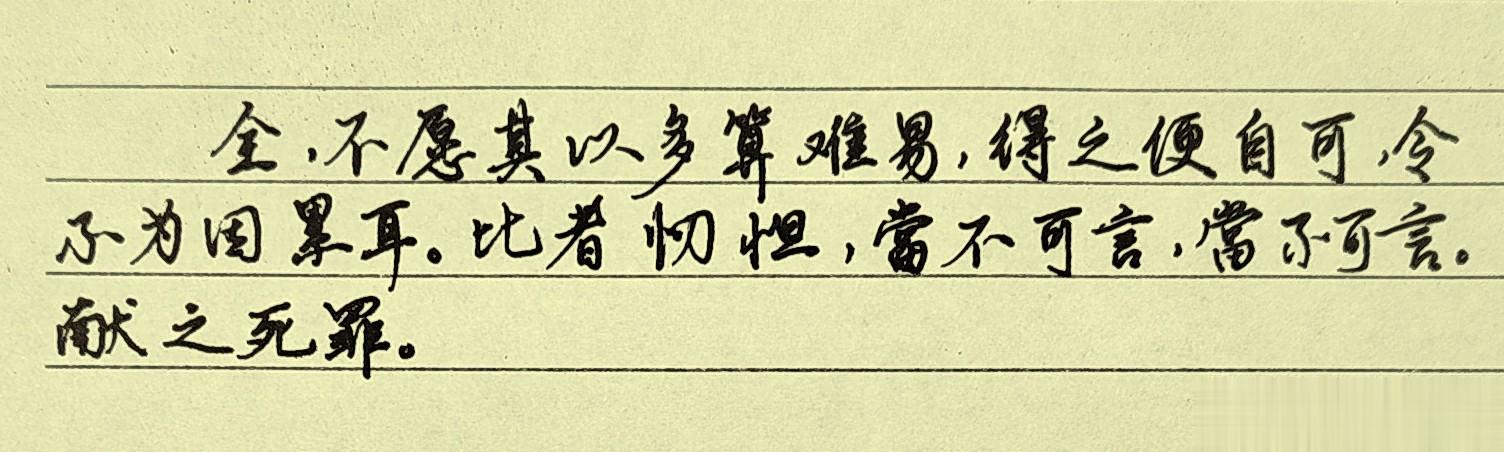 全，不愿其以多算难易，得之便自可，令
不为因累耳。比者忉怛，當不可言，當不可言。
献之死罪。